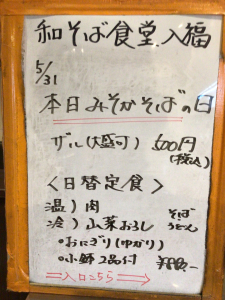 和そば食堂 入福
5/31
本日みそかそばの日
ザル(大盛可) 500円
(税込)
<日替定食>
温) 肉
冷) 山菜おろし そば うどん
•おにぎり(ゆかり)
•小鉢 2品付
⇒入口こちら⇒